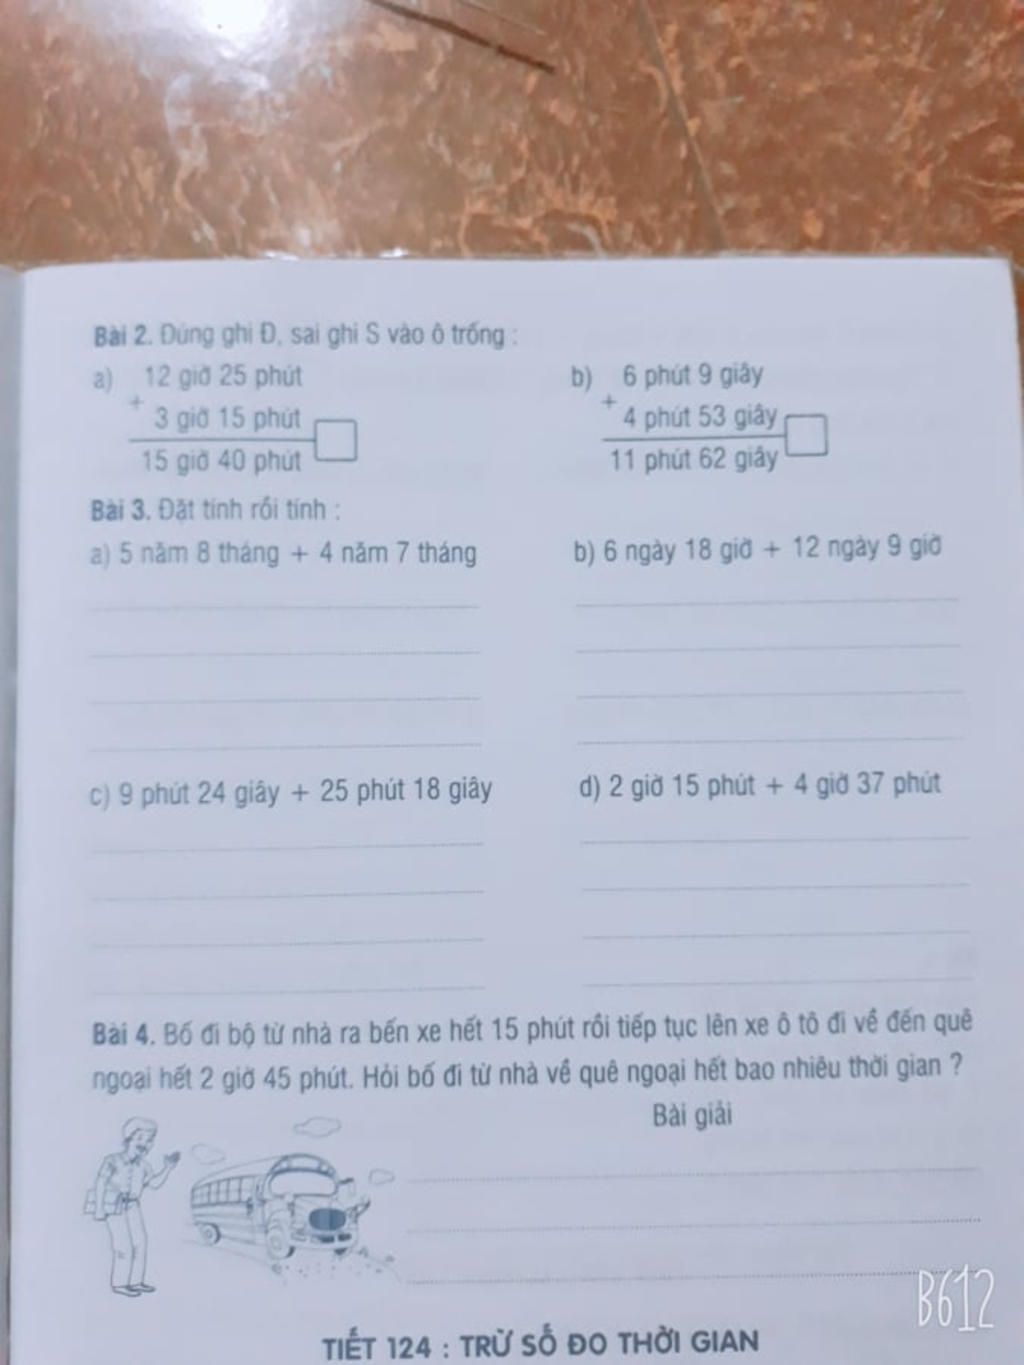 Bài 2. Đúng ghi Đ, sai ghi S vào ô trống :
a) 12 giờ 25 phút
+
3 giờ 15 phút
15 giờ 40 phút
b) 6 phút 9 giây
+
4 phút 53 giây
11 phút 62 giây
Bài 3. Đặt tính rồi tính :
a) 5 năm 8 tháng + 4 năm 7 tháng
b) 6 ngày 18 giờ + 12 ngày 9 giờ
c) 9 phút 24 giây + 25 phút 18 giây
d) 2 giờ 15 phút + 4 giờ 37 phút
Bài 4. Bố đi bộ từ nhà ra bến xe hết 15 phút rồi tiếp tục lên xe ô tô đi về đến quê
ngoại hết 2 giờ 45 phút. Hỏi bố đi từ nhà về quê ngoại hết bao nhiêu thời gian ?
Bài giải
B612
TIẾT 124 : TRỪ SỐ ĐO THỜI GIAN